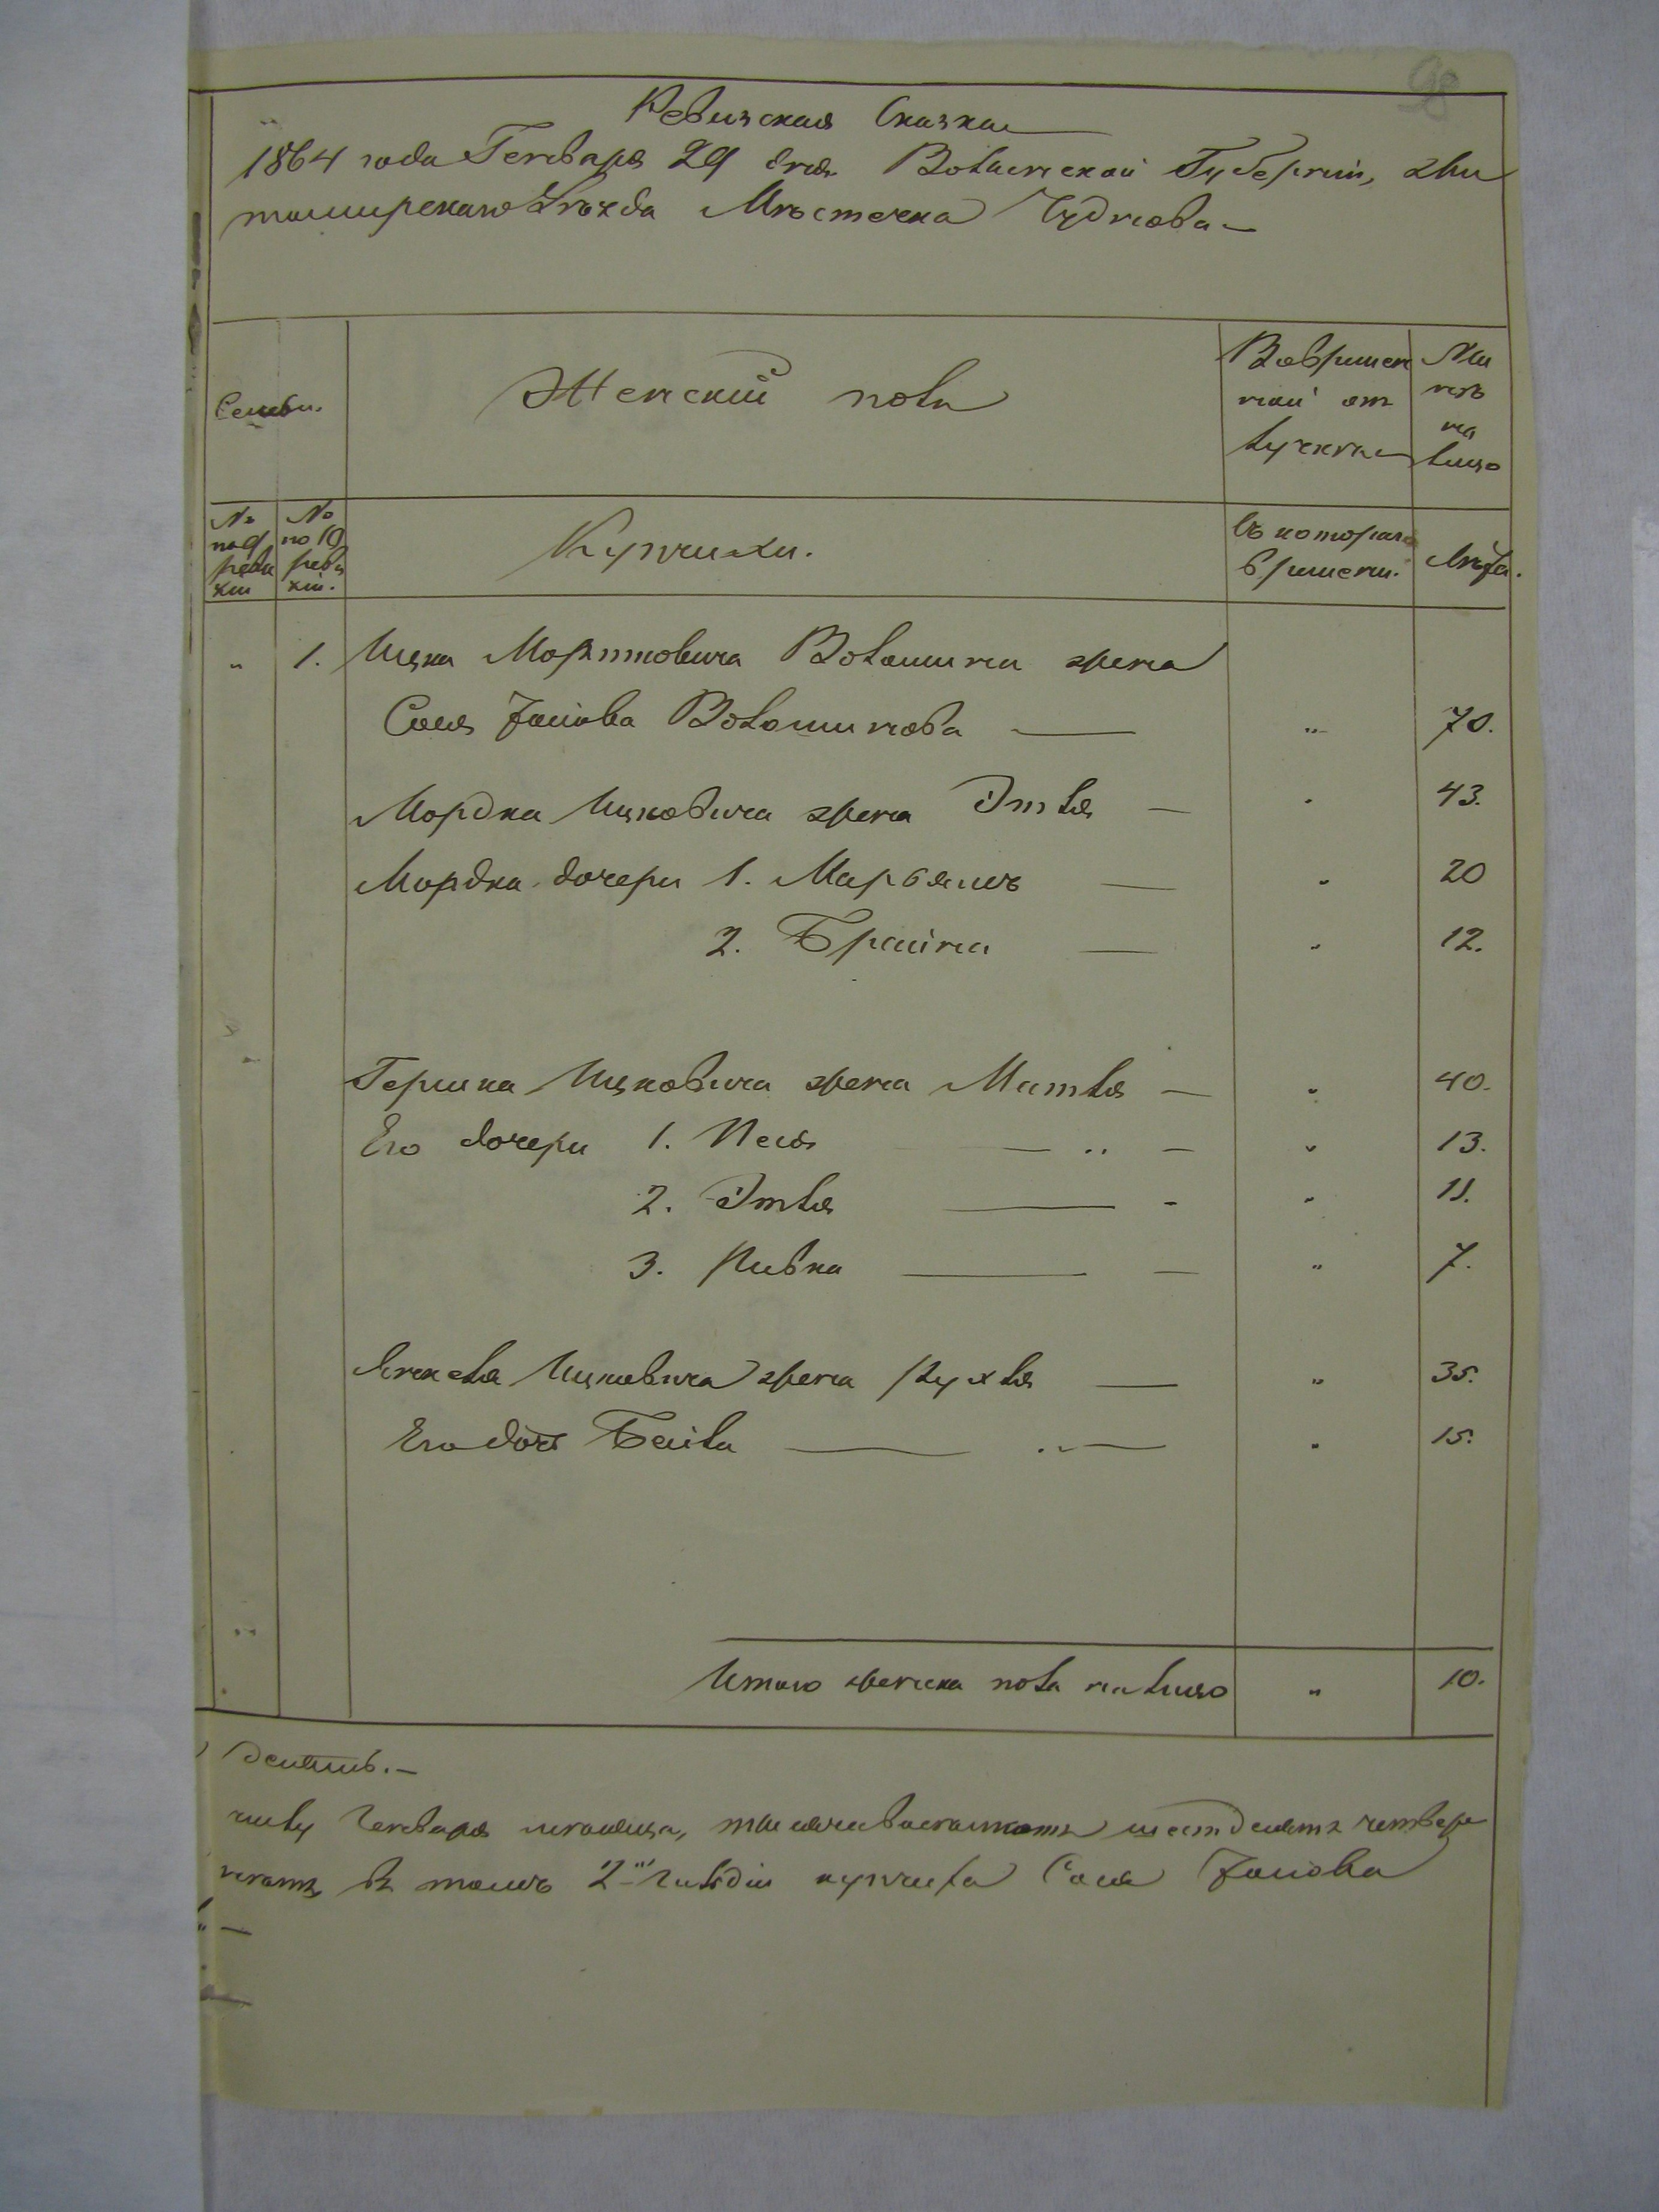 98
Ревизская Сказка
1864 года Генваря 29 дня Волынской Губернiи, Жи
томирскаго Уѣзда Мѣстечка Чуднова
Семьи.
Женскiй полъ
Во времен
ной от
лучкѣ
На
лицо
№ по 9 реви зiи
№ по 10 реви зiи.
Купчихи.
Съ котораго
времени.
Лѣта.
" 1. Ицка Мортковича Волошина жена
Сося Волошинова — " 70.
Мордка Ицковича жена Этля — " 43.
Мордка дочери 1. — " 20
2. Брайна — " 12.
Гершка Ицковича жена Митля — " 40.
Его дочери 1. Песя — " 13.
2. Этля — " 11.
3. Ривка — " 7.
Янкеля Ицковича жена Рухля — " 35.
Его дочь Бейла — " 15.
Итого женска пола на лицо " 10.
десять.—
числу Генваря мѣсяца, тысяча восемьсотъ шестдесятъ четвер
въ томъ 2й гильдiи купчиха Сося